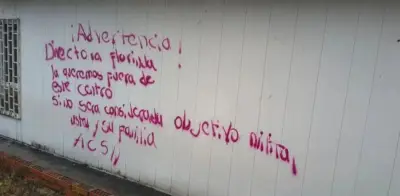 ¡Advertencia!
Directora florinda
la queremos fuera de
este centro
si no sera considerada objectivo militar
usted y su familia
ACSN